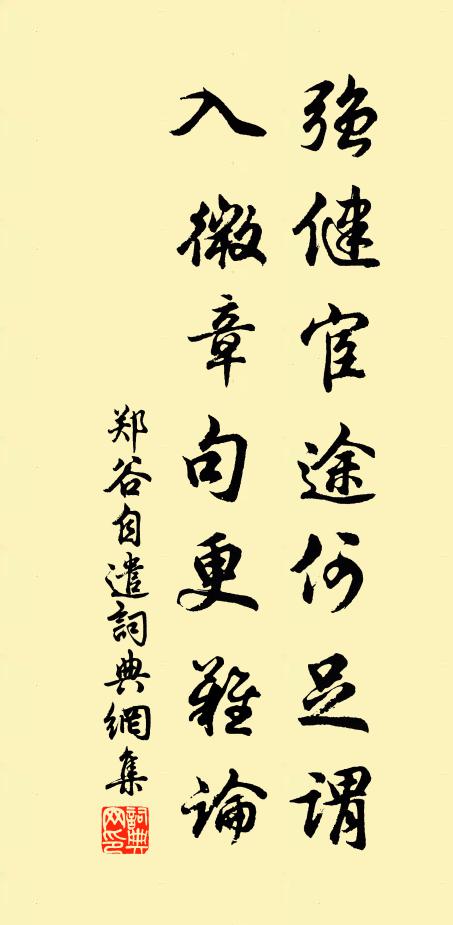 强健宦途何足谓
入微章句更难论
郑谷自遣詞典網集
詞典网印